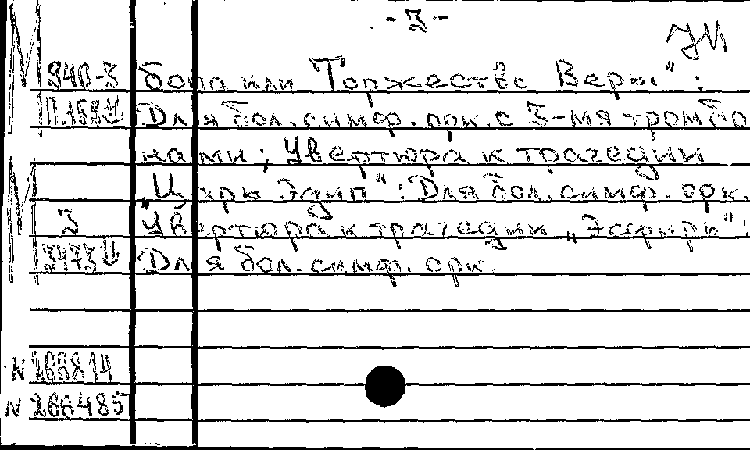 -3-
бопа или "Торжество Веры":
Для бол. симф. орк. с 3-мя тромбо
нами; Увертюра к трагедии
"Царь Эдип": Для бол. симф. орк.
Увертюра к трагедии "Эсфирь":
Для бол. симф. орк.
N 266814
N 266485